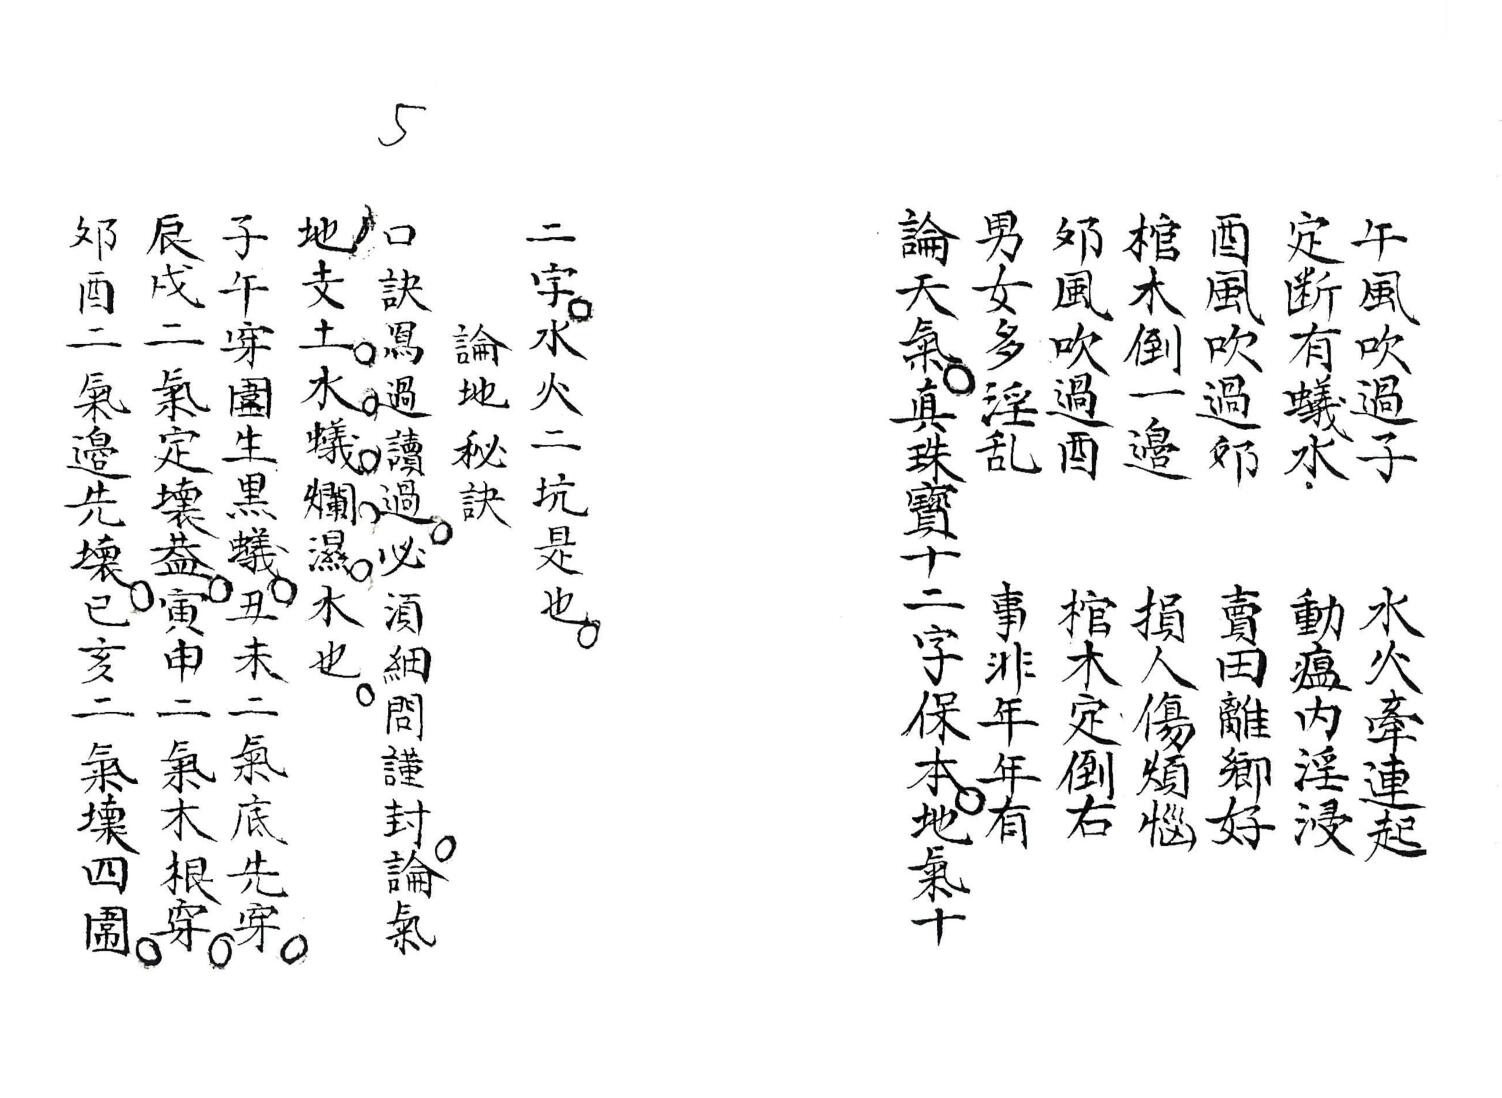 午風吹過子　水火牽連起
定断有蟻水　動瘟内淫浸
酉風吹過夘　賣田離鄉好
棺木倒一邉　損人傷煩惱
夘風吹過酉　棺木定倒右
男女多淫乱　事非年年有
論天氣。真珠寶十二字保本。地氣十
二字。水火二坑是也。
論地秘訣
5
口訣寫過讀過。必須細問謹封。論氣
地支土。水。蟻。爛。濕。水也。
子午穿圍生黒蟻。丑未二氣底先穿。
辰戌二氣定壞葢。寅申二氣木根穿。
夘酉二氣邉先壞。巳亥二氣壞四圍。